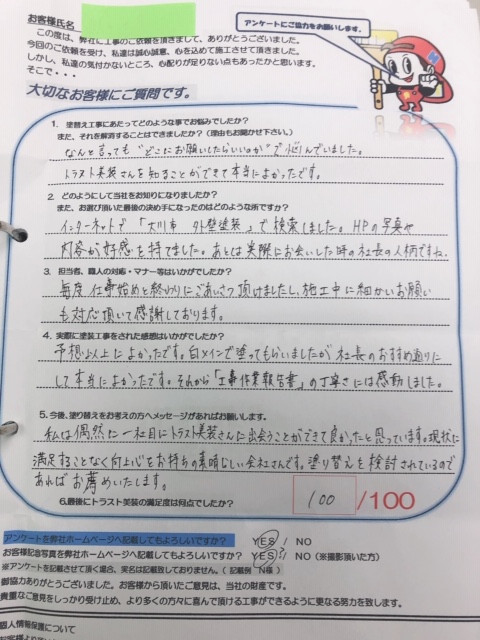 お客様氏名
アンケートにご協力をお願いします。
この度は、弊社に工事のご依頼を頂きまして、ありがとうございました。
今回のご依頼を受け、私達は誠心誠意、心を込めて施工させて頂きました。
しかし、私達の気付かないところ、心配りが足りない点もあったかと思います。
そこで・・・
大切なお客様にご質問です。
1. 塗替え工事にあたってどのような事でお悩みでしたか?
また、それを解消することはできましたか?(理由もお聞かせ下さい。)
なんと言っても"どこにお願いしたらいいのか"で悩んでいました。
トラスト美装さんを知ることができて本当によかったです。
2. どのようにして当社をお知りになりましたか?
また、お選び頂いた最後の決め手になったのはどのような所ですか?
インターネットで「大川市 外壁塗装」で検索しました。HPの写真や
内容が好感を持てました。あとは実際にお会いした時の社長の人柄ですね。
3. 担当者、職人の対応・マナー等はいかがでしたか?
毎度仕事始めと終わりにごあいさつ頂けましたし、施工中に細かいお願い
も対応頂いて感謝しております。
4. 実際に塗装工事をされた感想はいかがでしたか?
予想以上によかったです。白メインで塗ってもらいましたが社長のおすすめ通りに
して本当によかったです。それから「工事作業報告書」の丁寧さには感動しました。
5. 今後、塗り替えをお考えの方へメッセージがあればお願いします。
私は偶然に一社目にトラスト美装さんに出会うことができて良かったと思っています。現状に
満足することなく向上心をお持ちの素晴しい会社さんです。塗り替えを検討されているので
あればお薦めいたします。
6.最後にトラスト美装の満足度は何点でしたか?
100 /100
アンケートを弊社ホームページへ記載してもよろしいですか? YES / NO
お客様記念写真を弊社ホームページへ記載してもよろしいですか? YES / NO (※撮影頂いた方)
※アンケートを記載させて頂く場合、実名は記載致しておりません。(記載例 N様)
御協力ありがとうございました。お客様から頂いたご意見は、当社の財産です。
貴重なご意見をしっかり受け止め、より多くの方々に喜んで頂ける工事ができるように更なる努力を致します。
個人情報保護について